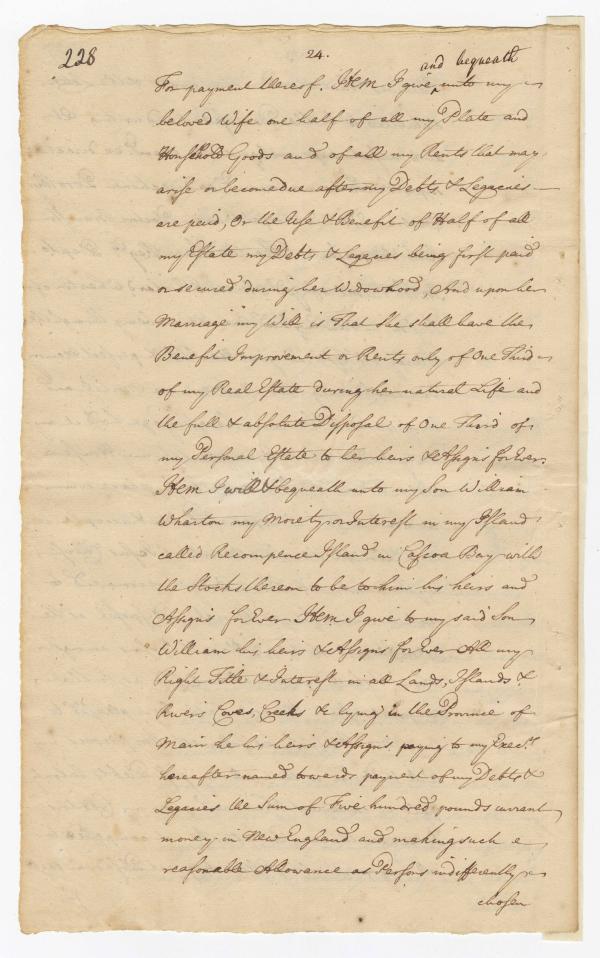 228
24.
and bequeath
For payment thereof. Item I give ‸ unto my
beloved Wife one half of all my Plate and
Household Goods and of all my Rents that may
arise or become due after my Debts & Legacies
are paid, Or the Use & Benefit of Half of all
my Estate my Debts & Legacies being first paid
or secured during her Widowhood, And upon her
Marriage my Will is That she shall have the
Benefit Improvement or Rents only of One Third
of my Real Estate during her natural Life and
the full & absolute Disposal of One Third of
my Personal Estate to her heirs & Assigns for Ever.
Item I will & bequeath unto my Son William
Wharton my Moiety or Interest in my Island
called Recompence Island in Cascoa Bay with
the Stocks thereon to be to him his heirs and
Assigns for Ever Item I give to my said Son
William his heirs & Assigns for Ever All my
Right Title & Interest in all Lands, Islands &
Rivers Coves, Creeks &c lying in the Province of
Main he his heirs & Assigns paying to my Exec.rs
hereafter named towards payment of my Debts &
Legacies the Sum of Five hundred pounds currant
money in New England and making such
reasonable Allowance as Persons indifferently
chosen